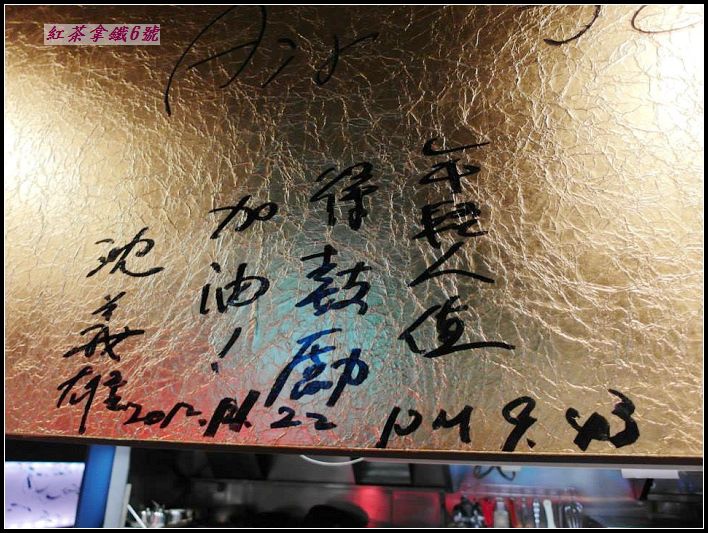 紅茶拿鐵6號
年輕人值
得鼓勵
加油!
沈義雄
2012.11.22 PM 9.43